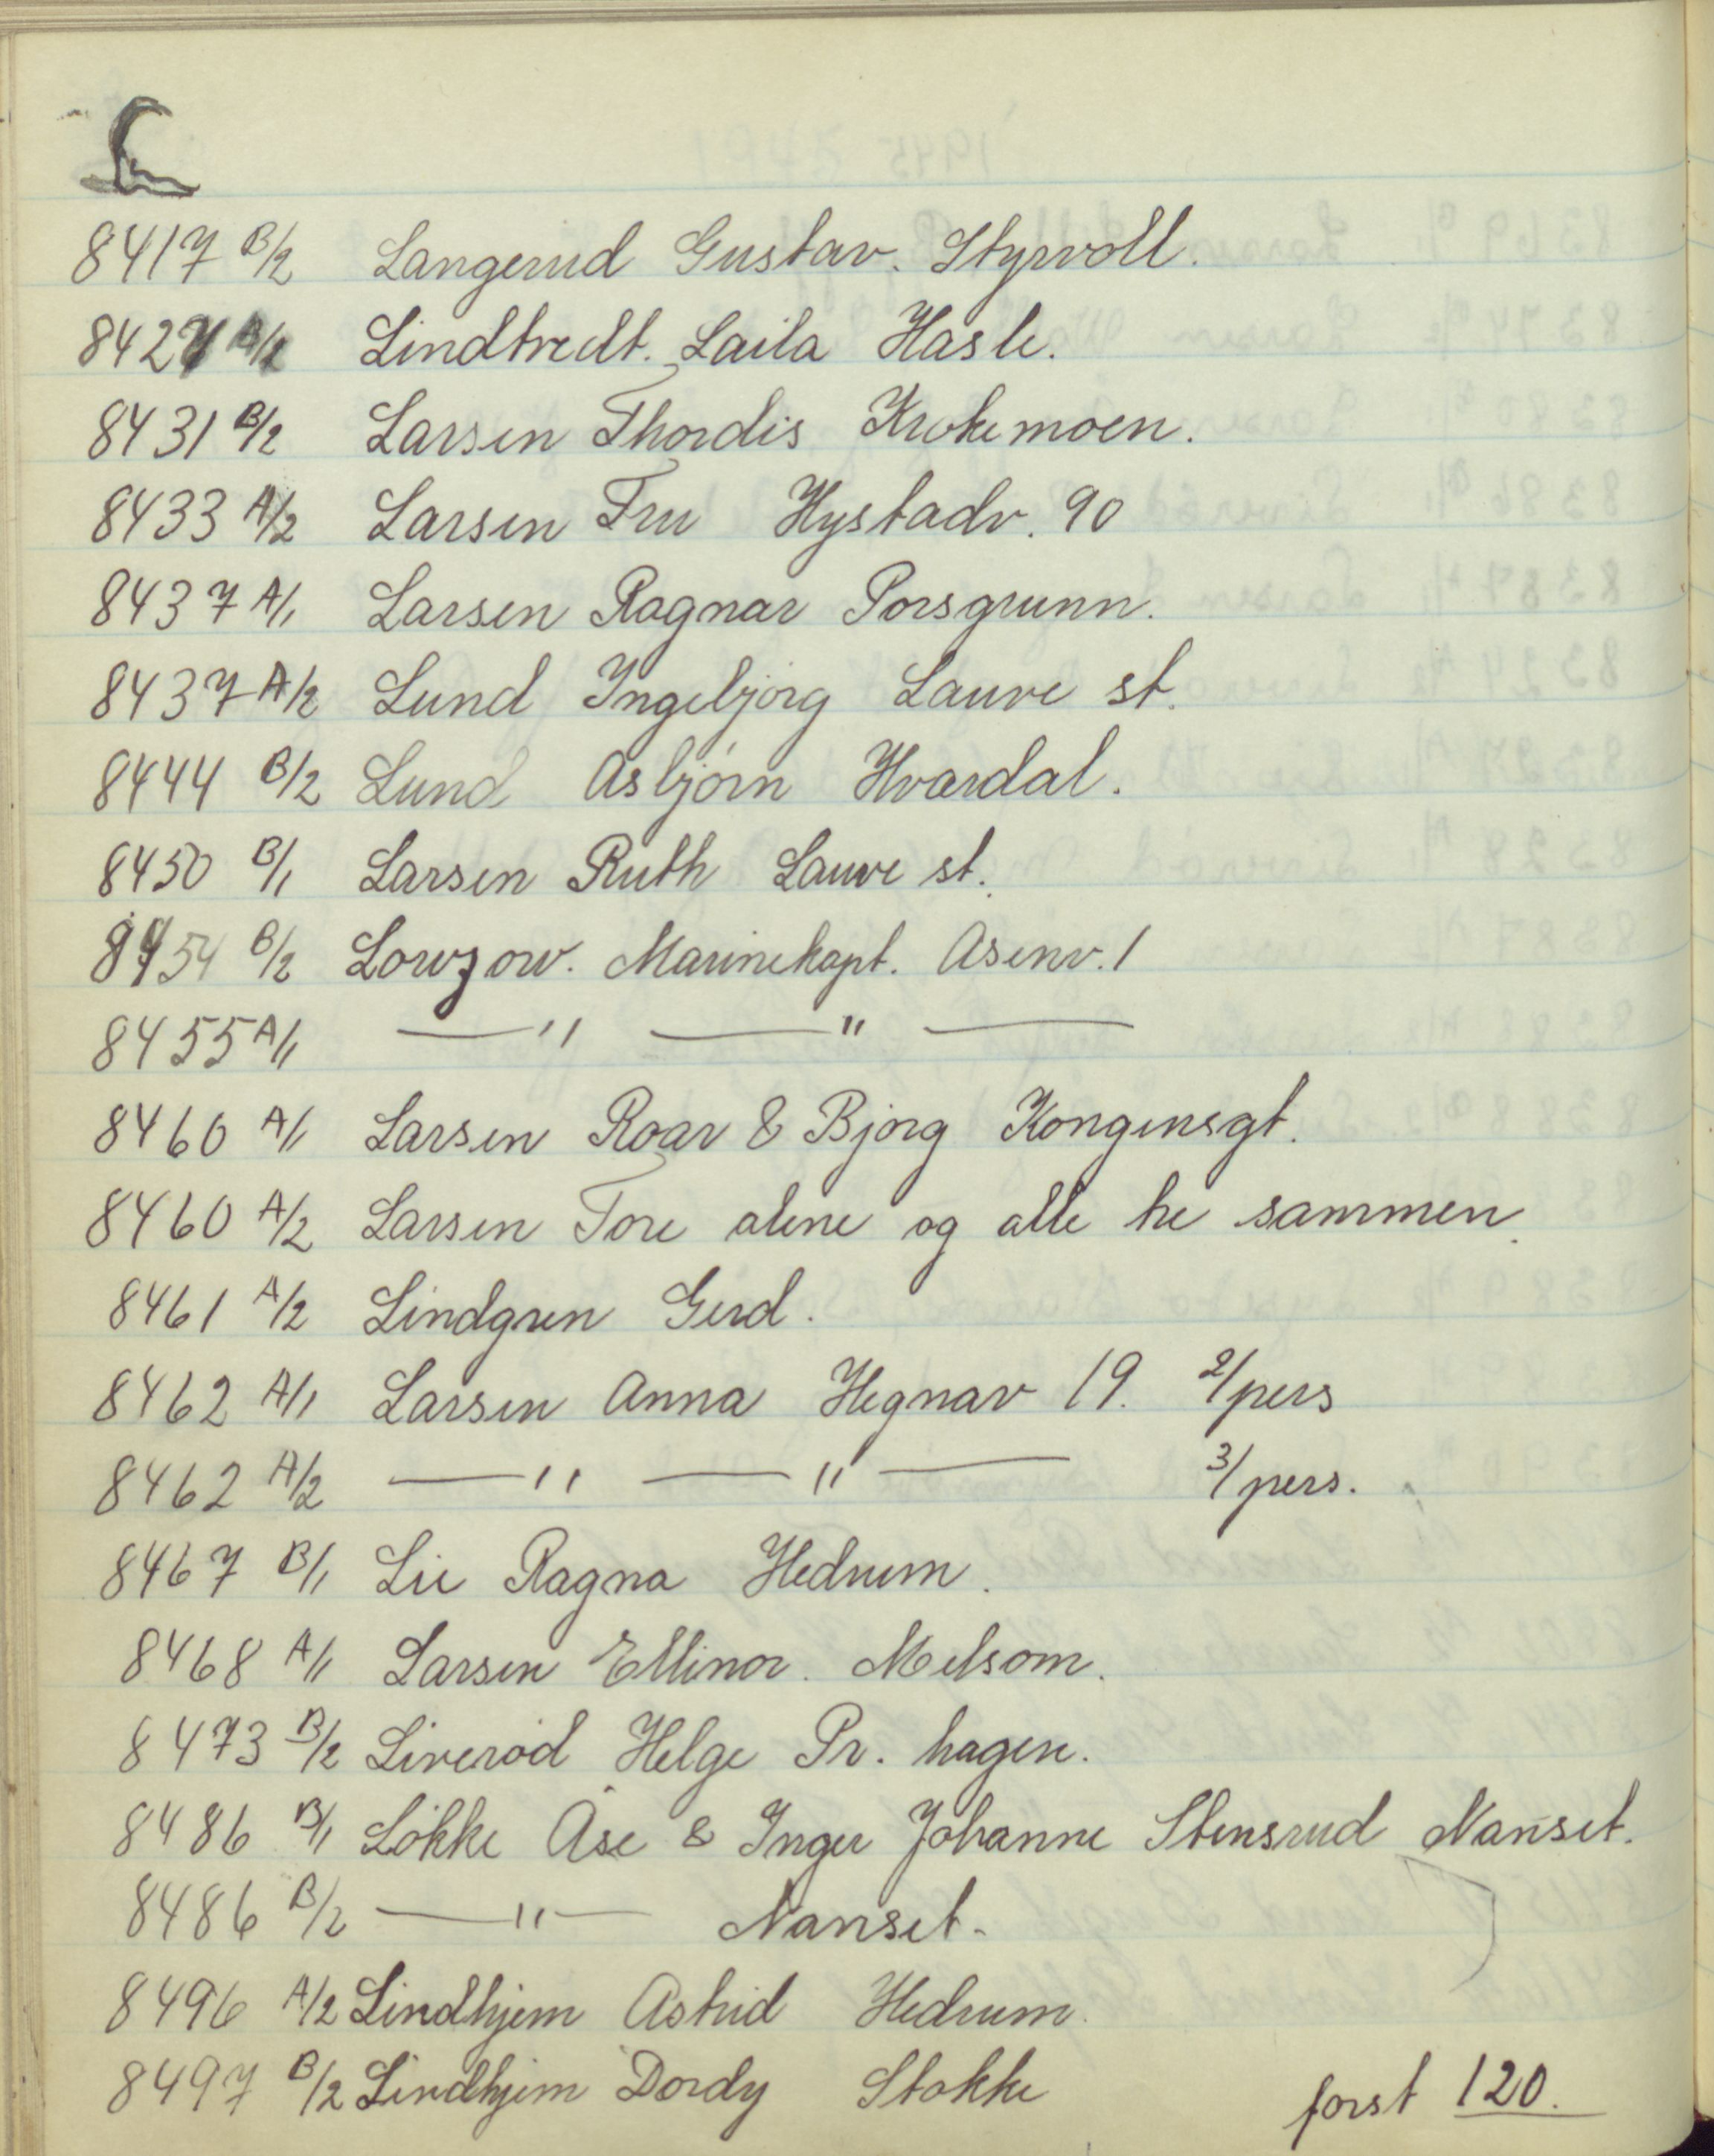 L
8417 B/2 Langerud Gustav. Styrvoll.
8427 B/2 Lindtvedt. Laila Hasle.
8431 B/2 Larsen Thordis Krokemoen.
8433 A/2 Larsen Fru Hystadv. 90
8437 A/1 Larsen Ragnar Porsgrunn.
8437 A/2 Lund Ingebjørg Lauve st.
8444 B/2 Lund Asbjørn Hvardal.
8450 B/1 Larsen Ruth Lauve st.
8454 B/2 Lowzow. Marinekapt. Åsenv. 1
8455 A/1 — " — " —
8460 A/1 Larsen Roar & Bjørg Kongensgt.
8460 A/2 Larsen Tore alene og alle tre sammen.
8461 A/2 Lindgren Gerd.
8462 A/1 Larsen Anna Hegnav 19. 2/pers
8462 A/2 — " — " — 3/pers.
8467 B/1 Lie Ragna Hedrum.
8468 A/1 Larsen Ellinor. Melsom.
8473 B/2 Liverød Helge Pr. hagen.
8486 B/1 Løkke Åse & Inger Johanne Stensrud Nanset.
8486 B/2 — " — Nanset.
8496 A/2 Lindhjem Astrid Hedrum.
8497 B/2 Lindhjem Dordy Stokke
forst 120.